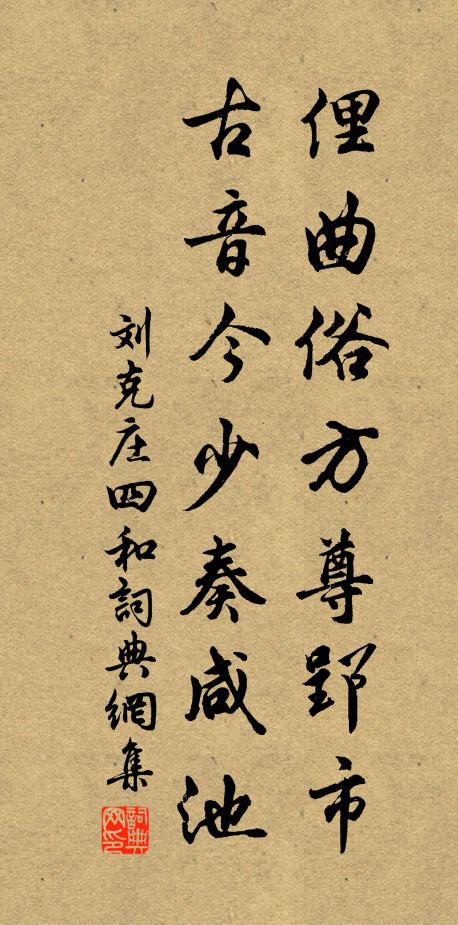 俚曲俗方尊郢市
古音今少奏咸池
刘克庄四和詞典網集
詞典网印